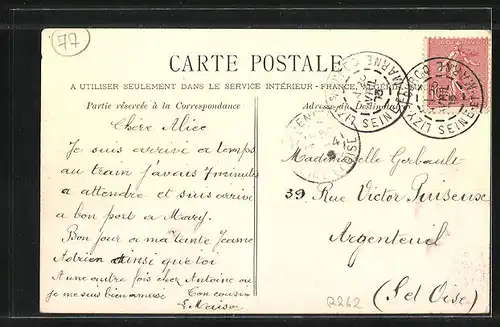 77
CARTE POSTALE
A UTILISER SEULEMENT DANS LE SERVICE INTÉRIEUR - FRANCE, ALGÉRIE,
Partie réservée à la Correspondance
Adresse du Destinataire
LIZY SEINE ET MARNE
LIZY SEINE ET MARNE
Chère Alice
Je suis arrivé a temps
au train j'avais 7 minutes
a attendre et suis arrivé
a bon port a Mary.
Bon jour a ma tente Jeanne
Adrien ainsi que toi
A une autre fois chez Antoine ou
je me suis bien amusé
Ton cousin
Mademoiselle Gerbault
39 Rue Victor Puiseuse
Argenteuil
(S et Oise)
0262